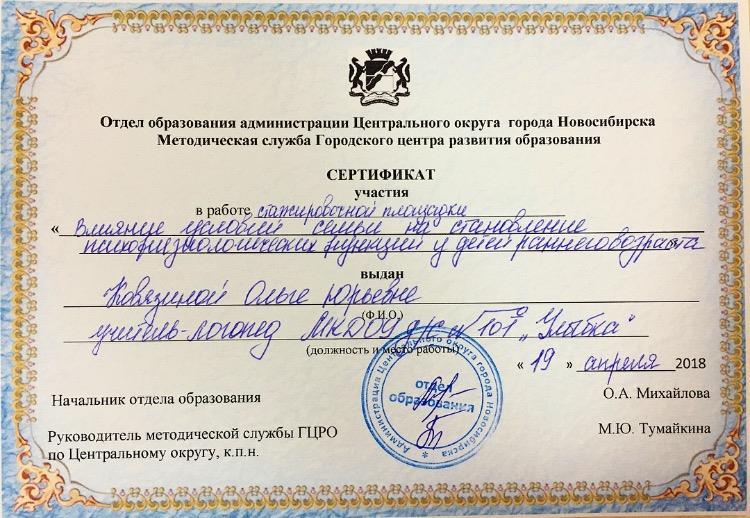 Отдел образования администрации Центрального округа города Новосибирска
Методическая служба Городского центра развития образования
СЕРТИФИКАТ
участия
в работе стажировочной площадки
« Влияние условий семьи на становление
психофизиологических функций у детей раннего возраста
выдан
Ковязиной Ольге Юрьевне
(Ф.И.О.)
учитель-логопед МКДОУ д/с № 101 „Улыбка“
(должность и место работы)
« 19 » апреля 2018
Начальник отдела образования
О.А. Михайлова
Руководитель методической службы ГЦРО
по Центральному округу, к.п.н.
М.Ю. Тумайкина
Администрация Центрального округа города Новосибирска
отдел
образования